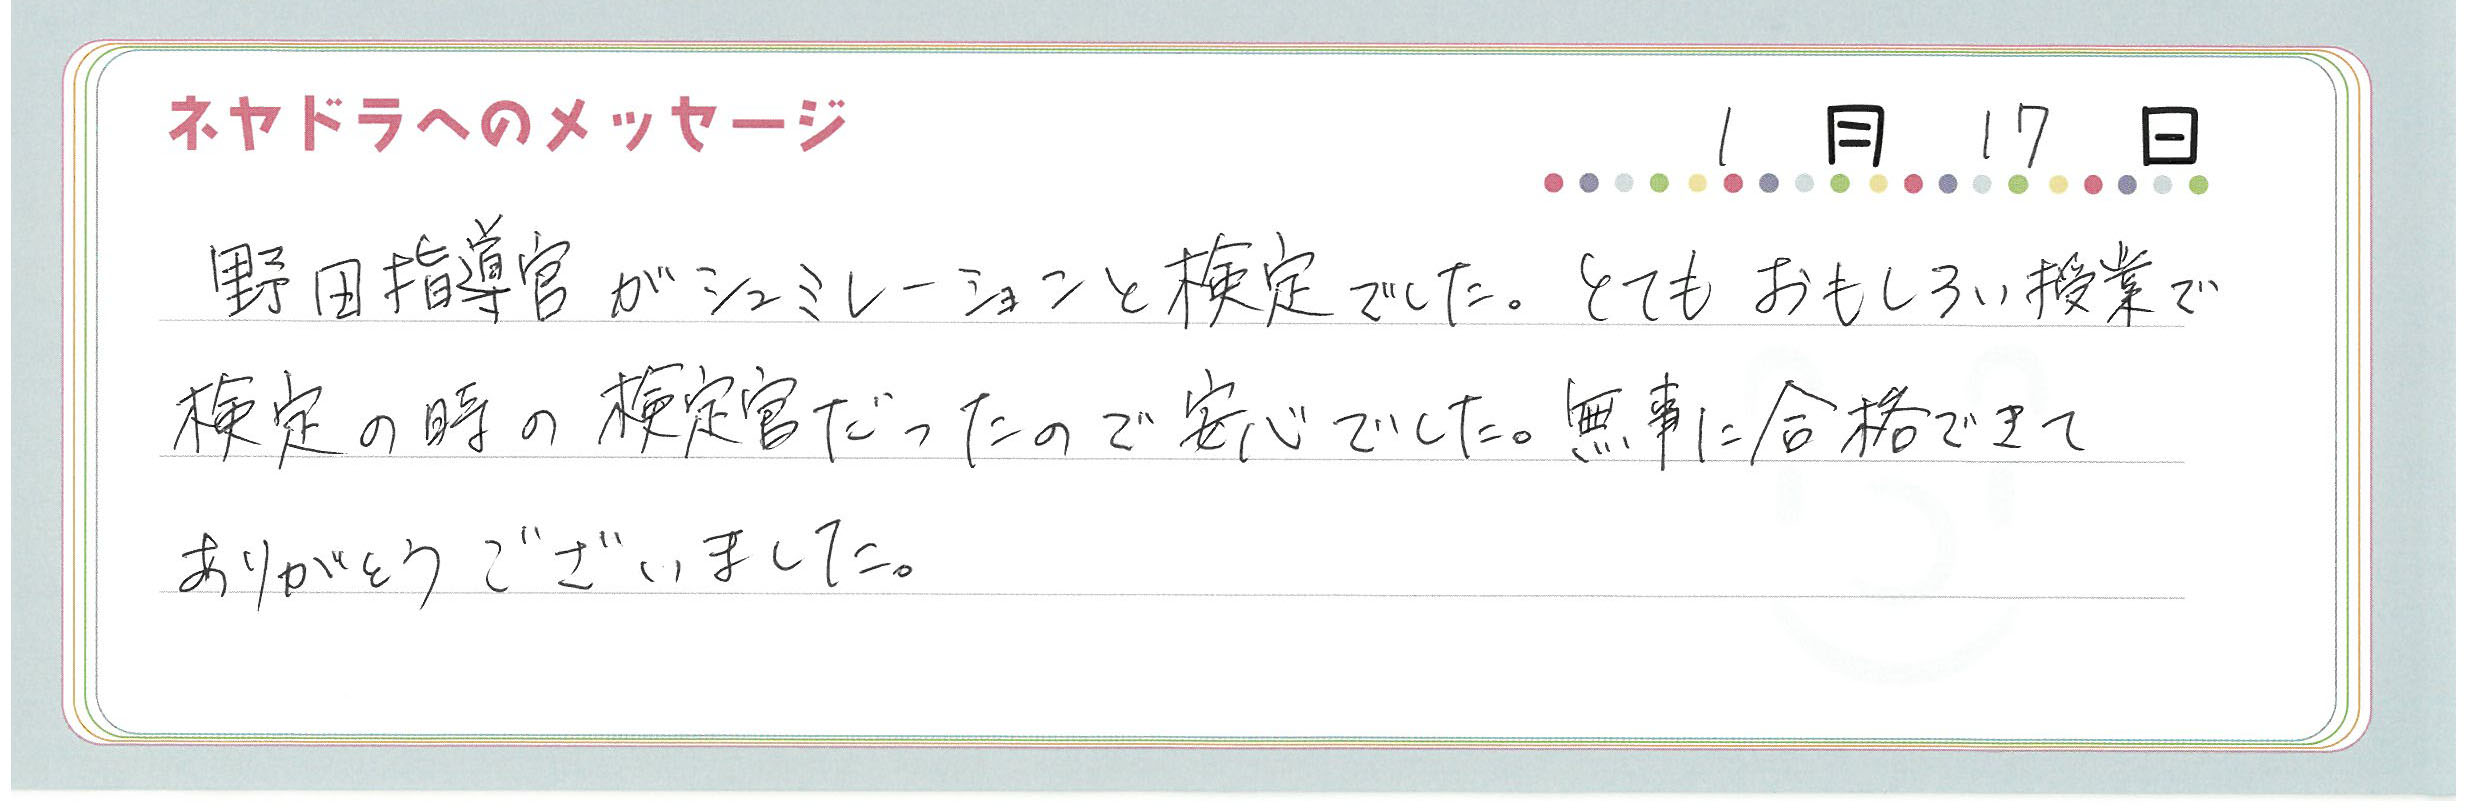 ネヤドラへのメッセージ
1月17日
野田指導官がシュミレーションと検定でした。とてもおもしろい授業で
検定の時の検定官だったので安心でした。無事に合格できて
ありがとうございました。